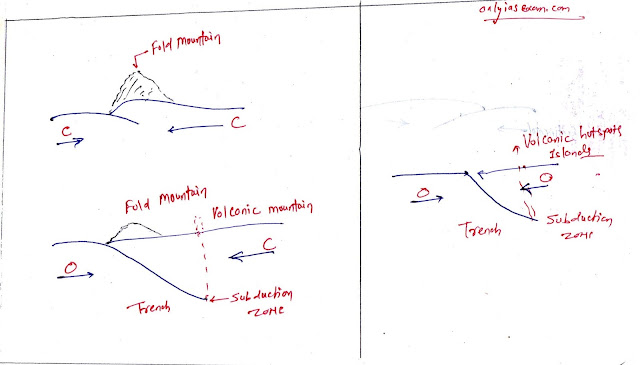 onlyiasexam.com
Fold mountain
C
C
Fold mountain
Volcanic mountain
O
C
Trench
Subduction
ZONE
Volcanic hotspots
Islands
O
O
Trench
Subduction
ZONE